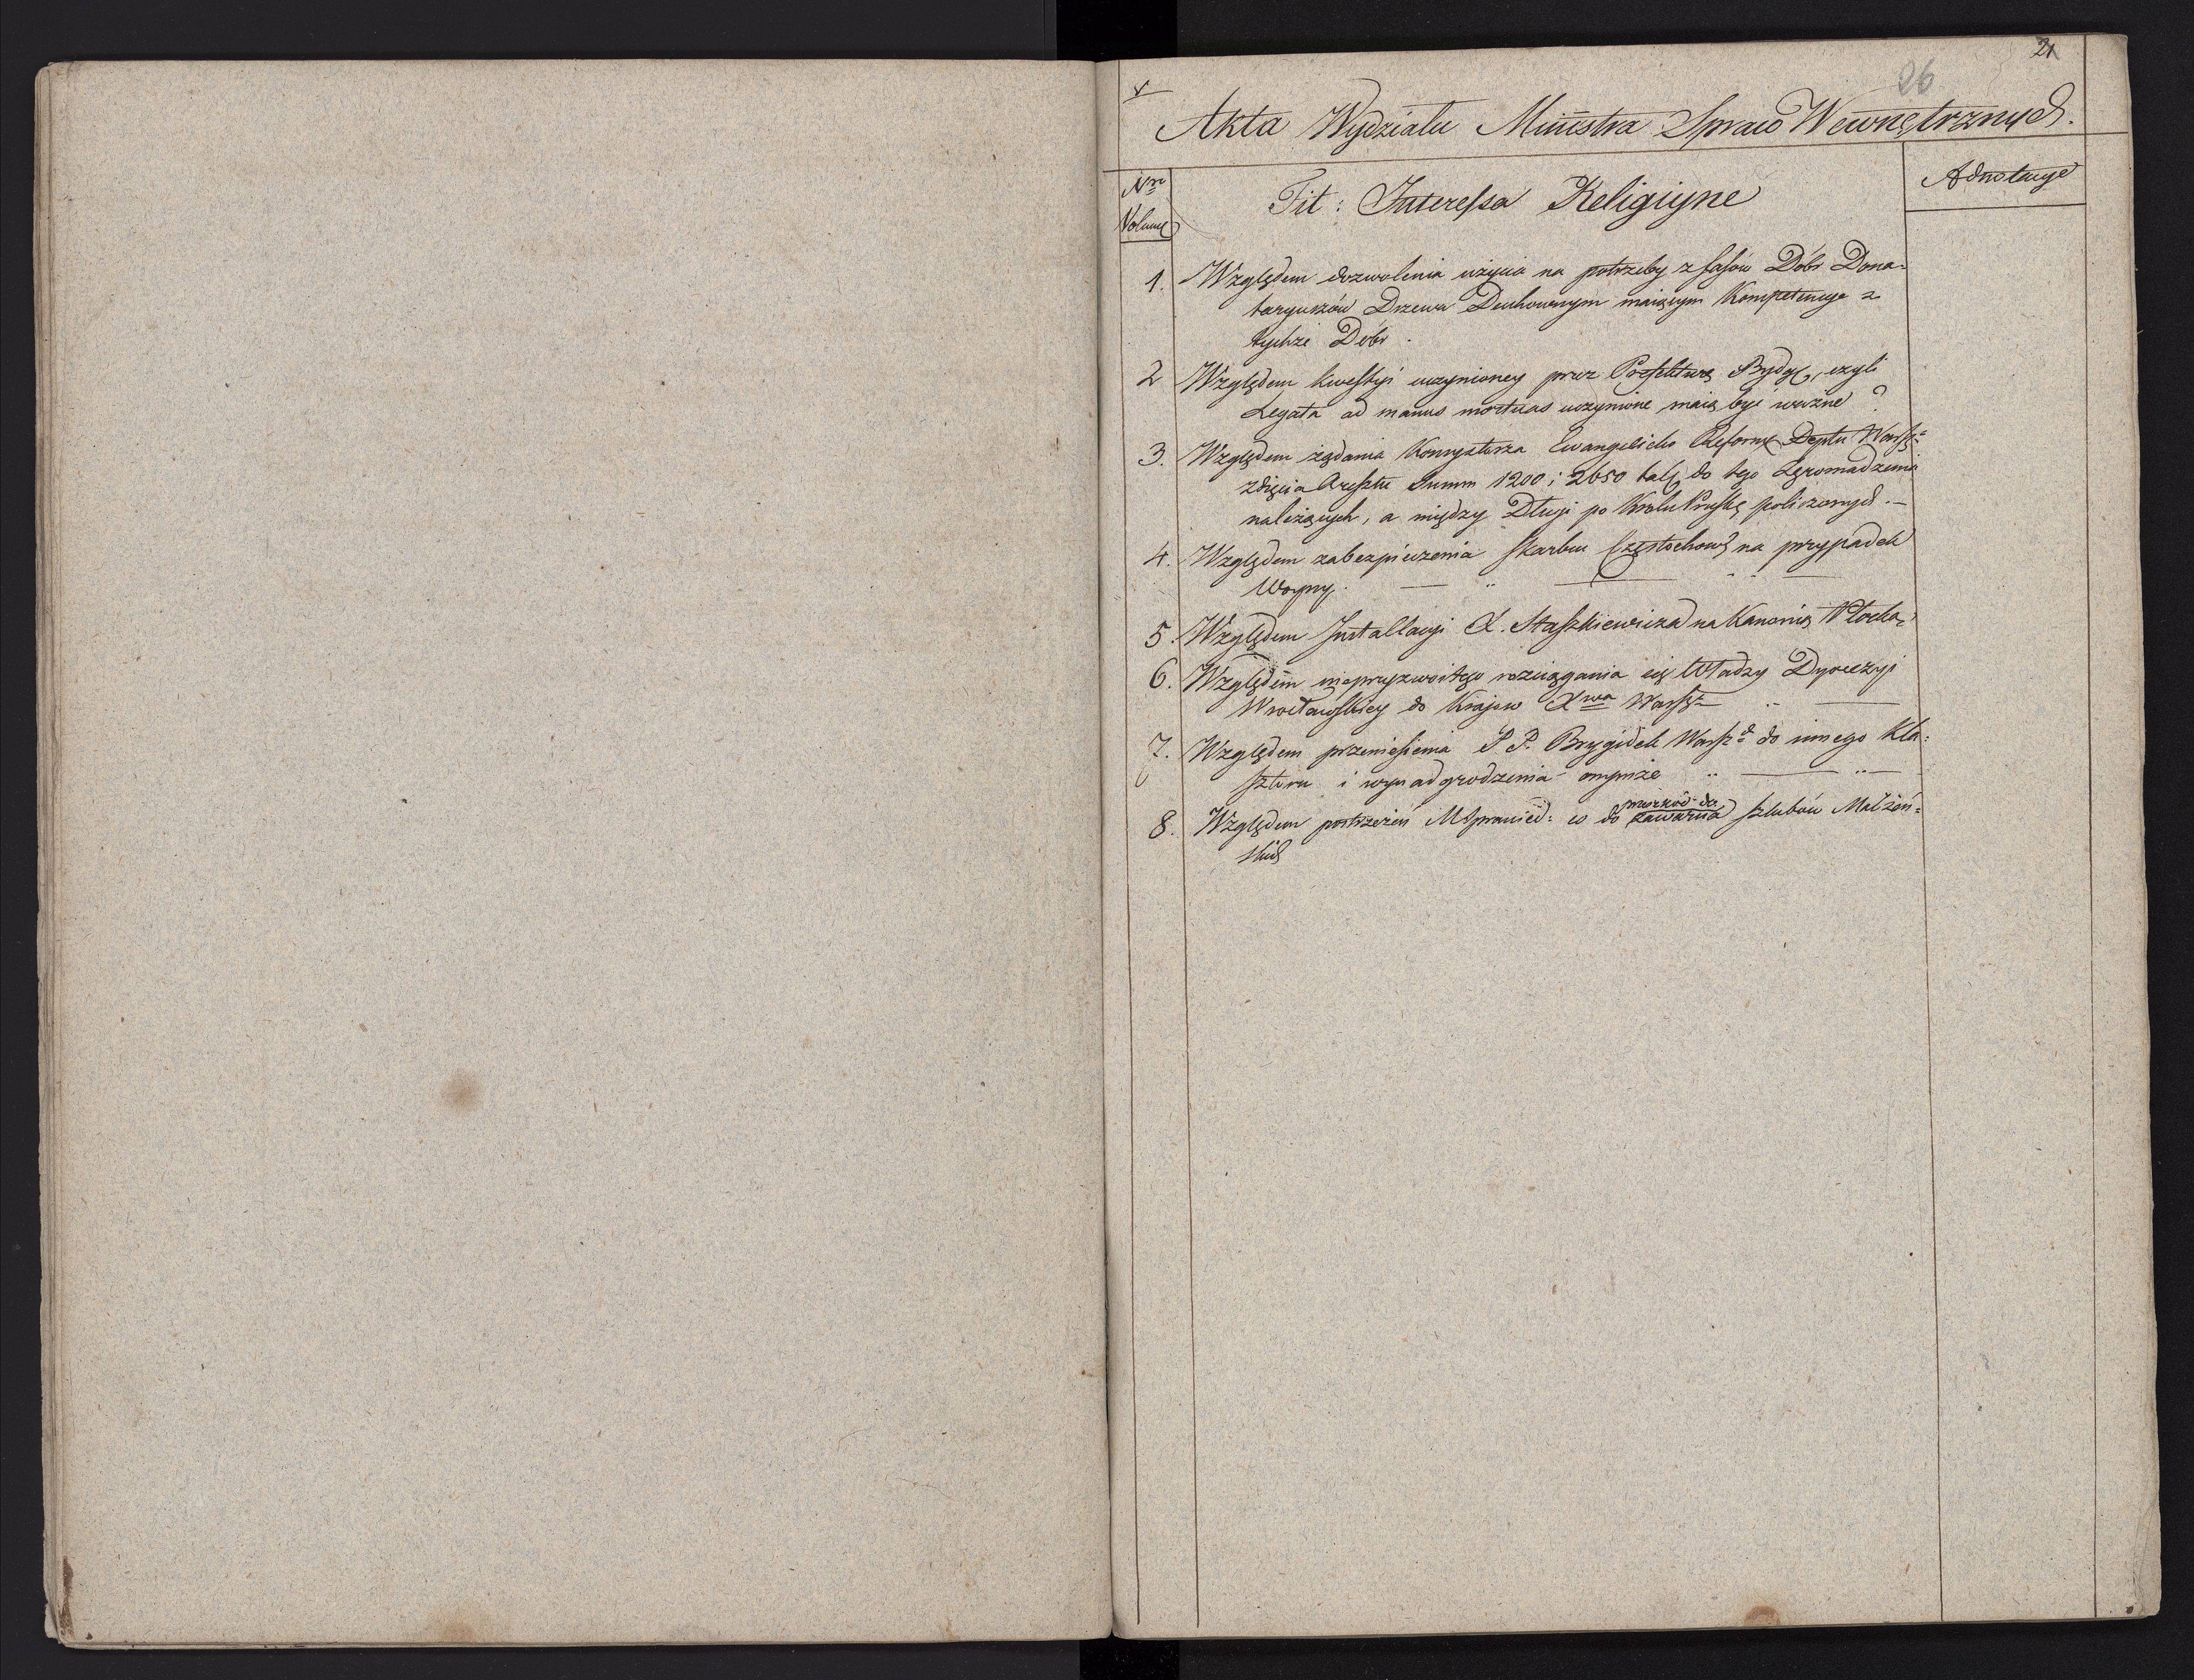 21
26
Akta Wydziału Ministra Spraw Wewnętrznych.
Nro
Volum
Tit: Interessa Religiyne
Adnotacye
1. Względem dozwolenia użycia na potrzeby z lasów Dóbr Dona-
taryuszów Drzewa Duchownym maiącym Kompetencye z
tychże Dóbr.
2 Względem kwestyi uczynioney przez Prefekturę Bydg, czyli
Legata ad manus mortuas uczynione maią być ważne?
3. Względem żądania Konsystorza Ewangelicko Reform Deptu Warsz
zdięcia Aresztu Summ 1200 i 2650 tal do tego Zgromadzenia
należących, a między Długi po Królu Prusk policzonych.—
4. Względem zabezpieczenia Skarbu Częstochow na przypadek
Woyny. — " — " —
5. Względem Installacyi X. Staszkiewicza na Kanonią Płocką
6. Względem nieprzyzwoitego rozciągania się Władzy Dyecezyi
Wrocławskiey do Kraiow Xwa Warsz " —
7. Względem przeniesienia P P. Brygidek Warsz do innego Kla-
sztoru i wynadgrodzenia onymże " — " —
8. Względem postrzeżeń MSprawied: co do przeszkód do zawarcia szlubów Małżeń-
skich